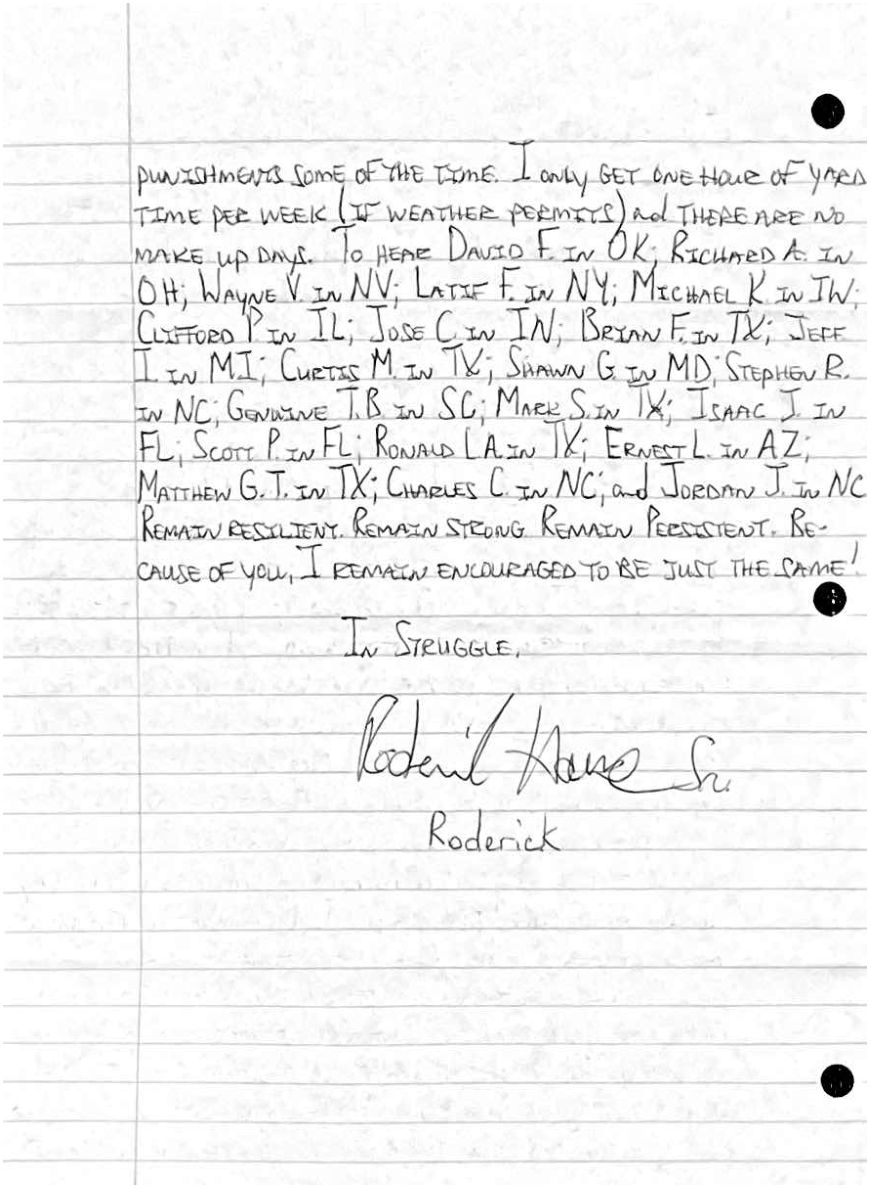 PUNISHMENTS SOME OF THE TIME. I only GET ONE HOUR OF YARD
TIME PER WEEK (IF WEATHER PERMITS) and THERE ARE NO
MAKE UP DAYS. TO HEAR DAVID F. IN OK; RICHARD A. IN
OH; WAYNE V. IN NV; LATIF F. IN NY; MICHAEL K. IN IW;
CLIFFORD P. IN IL; JOSE C. IN IN; BRIAN F. IN TX; JEFF
I. IN MI; CURTIS M. IN TX; SHAWN G. IN MD; STEPHEN R.
IN NC; GENUINE T.B. IN SC; MARK S. IN TX; ISAAC J. IN
FL; SCOTT P. IN FL; RONALD L.A. IN TX; ERNEST L. IN AZ;
MATTHEW G.T. IN TX; CHARLES C. IN NC; and JORDAN J. IN NC
REMAIN RESILIENT. REMAIN STRONG. REMAIN PERSISTENT. BE-
CAUSE OF YOU, I REMAIN ENCOURAGED TO BE JUST THE SAME!
IN STRUGGLE,
Roderick Sr.
Roderick